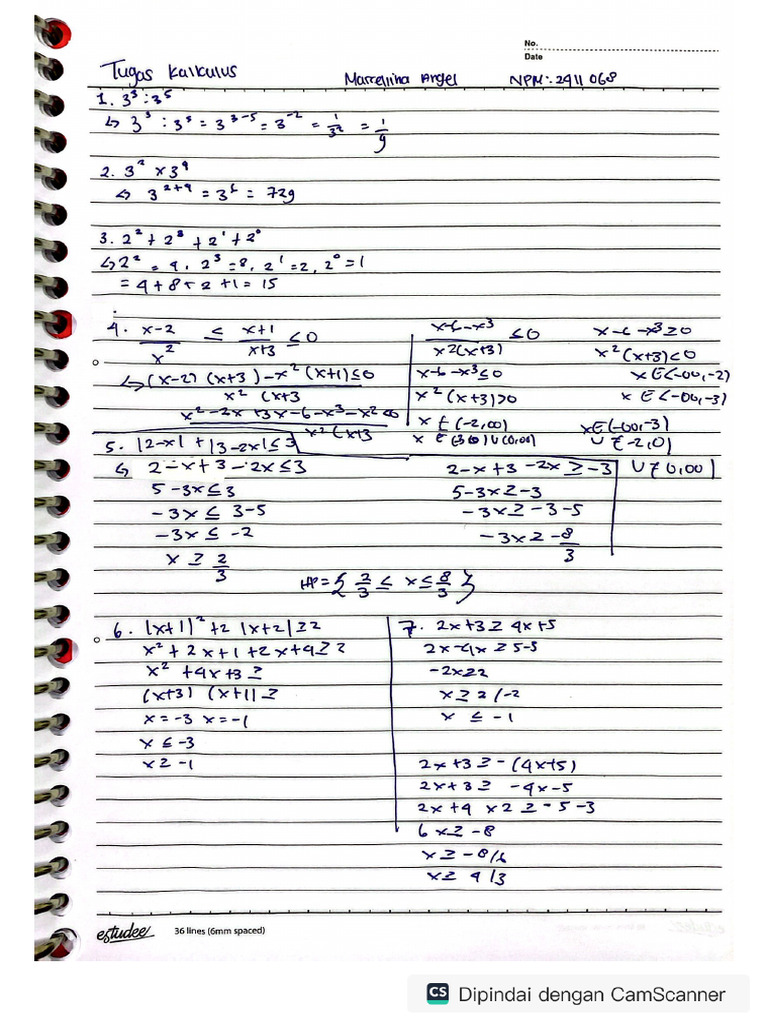 No.
Date
Tugas Kalkulus Marcellina Angel NPM: 2411068
1. 3³ : 3⁵
↳ 3³ : 3⁵ = 3³⁻⁵ = 3⁻² = 1/3² = 1/9
2. 3² x 3⁴
↳ 3²⁺⁴ = 3⁶ = 729
3. 2² + 2³ + 2¹ + 2⁰
↳ 2² = 4, 2³ = 8, 2¹ = 2, 2⁰ = 1
= 4 + 8 + 2 + 1 = 15
4. x-2/x² ≤ x+1/x+3 ≤ 0
↳ (x-2) (x+3) - x² (x+1) ≤ 0 / x² (x+3
x² - 2x + 3x - 6 - x³ - x² ≤ 0 / x² (x+3
x-6-x³/x²(x+3) ≤ 0
x-6-x³ ≤ 0
x² (x+3) > 0
x ∈ (-2, ∞)
x-6-x³ ≥ 0
x² (x+3) < 0
x ∈ (-∞, -2)
x ∈ (-∞, -3)
x ∈ (-∞, -3)
∪ (-2, 0)
∪ (0, ∞)
5. |2-x| + |3-2x| ≤ 3
↳ 2 - x + 3 - 2x ≤ 3
5 - 3x ≤ 3
-3x ≤ 3-5
-3x ≤ -2
x ≥ 2/3
2 - x + 3 - 2x ≥ -3
5 - 3x ≥ -3
-3x ≥ -3 -5
-3x ≥ -8/3
HP = { 2/3 ≤ x ≤ 8/3 }
6. (x+1)² + 2 |x+2| ≥ 2
x² + 2x + 1 + 2x + 4 ≥ 2
x² + 4x + 3 ≥
(x+3) (x+1) ≥
x = -3 x = -1
x ≤ -3
x ≥ -1
7. 2x + 3 ≥ 4x + 5
2x - 4x ≥ 5-3
-2x ≥ 2
x ≥ 2/-2
x ≤ -1
2x + 3 ≥ - (4x+5)
2x + 3 ≥ -4x - 5
2x + 4 x 2 ≥ -5 - 3
6 x ≥ -8
x ≥ -8/6
x ≥ 4/3
estudee 36 lines (6mm spaced)
CS Dipindai dengan CamScanner